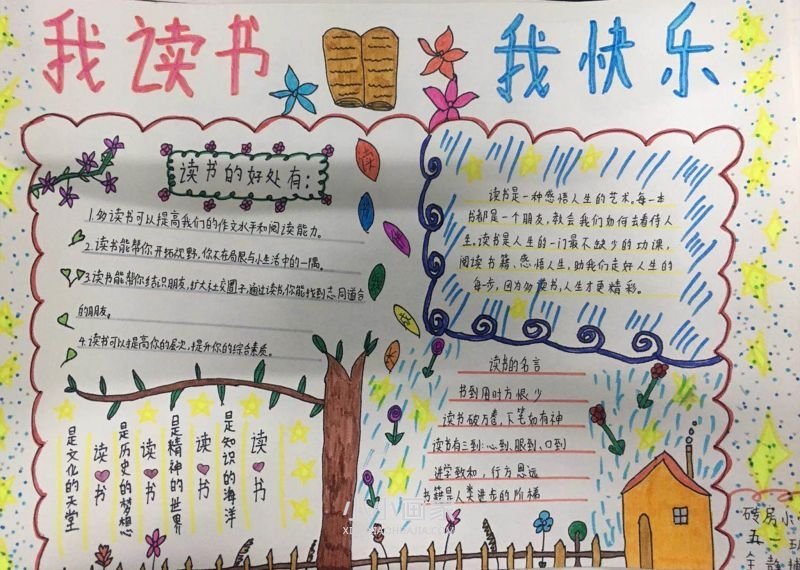 我读书 我快乐
读书的好处有:
1.多读书可以提高我们的作文水平和阅读能力。
2.读书能帮你开拓视野,你不在局限与小生活中的一隅。
3.读书能帮你结识朋友,扩大社交圈子,通过读书,你能找到志同道合
的朋友。
4.读书可以提高你的层次,提升你的综合素质。
读书是一种感悟人生的艺术,每一本
书都是一个朋友,教会我们如何去看待人
生,读书是人生的一门最不缺少的功课,
阅读书籍、感悟人生,助我们走好人生的
每一步,因为多读书,人生才更精彩。
读书的名言
书到用时方恨少
读书破万卷,下笔如有神
读书有三到:心到、眼到、口到
进学致和,行方思远
书籍是人类进步的阶梯
读书
是知识的海洋
读书
是精神的世界
读书
是历史的梦想
读书
是文化的天堂
小
五一班